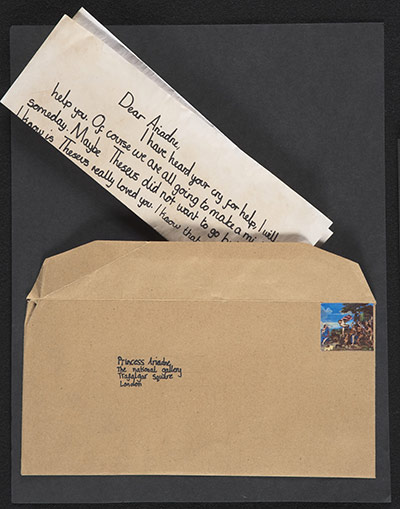 Dear Ariadne,
I have heard your cry for help, I will
help you. Of course we are all going to make a mi
someday. Maybe Theseus did not want to go
I know is Theseus really loved you. I know that
Princess Ariadne,
The national gallery
Trafalgar Square
London